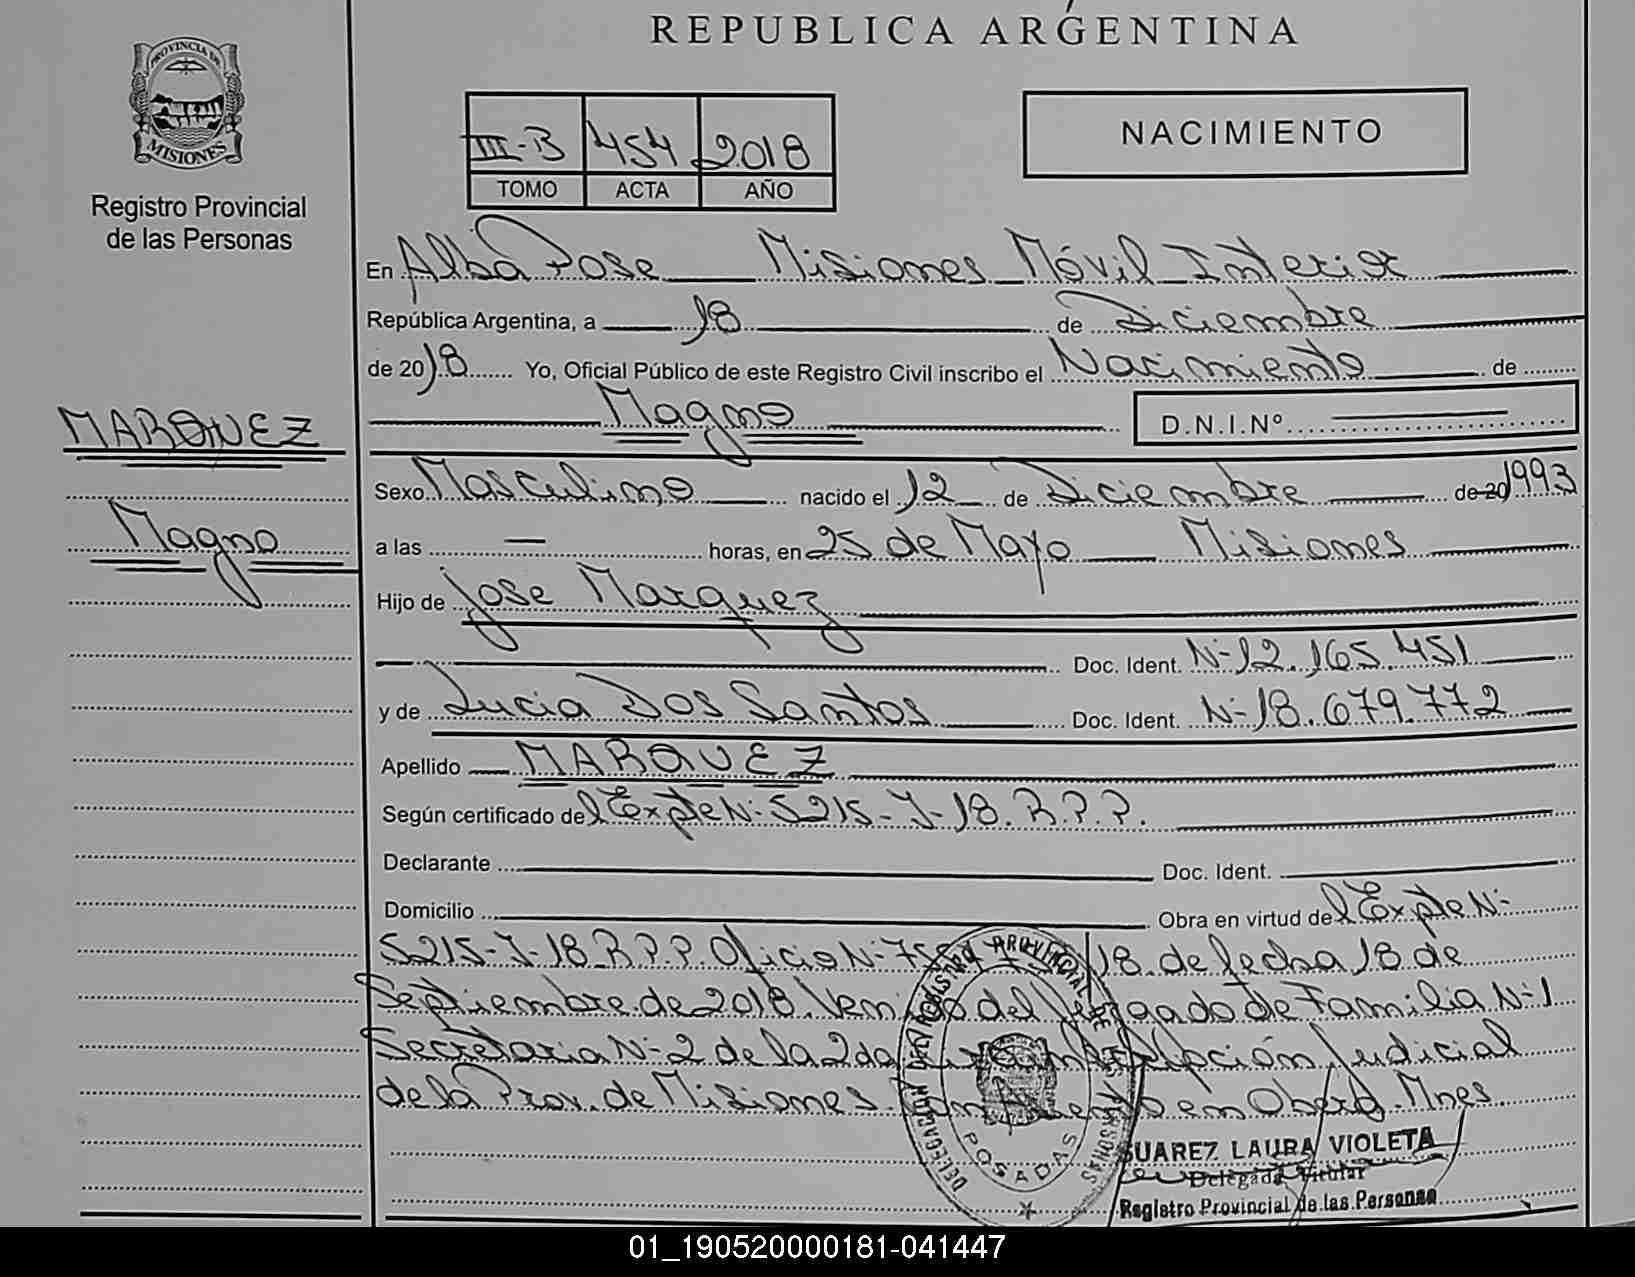 REPUBLICA ARGENTINA
PROVINCIA DE
MISIONES
Registro Provincial
de las Personas
III-B 454 2018
TOMO ACTA AÑO
NACIMIENTO
En Alba Pose Misiones Móvil Interior
República Argentina, a 18 de Diciembre
de 2018 Yo, Oficial Público de este Registro Civil inscribo el Nacimiento de
Magno D.N.I.Nº
MARQUEZ
Magno
Sexo Masculino nacido el 12 de Diciembre de 20 1993
a las — horas, en 25 de Mayo Misiones
Hijo de Jose Marquez
Doc. Ident. Nº 12.165.451
y de Lucia Dos Santos Doc. Ident. Nº 18.679.772
Apellido MARQUEZ
Según certificado del Expte Nº 5215-J-18.R.P.P.
Declarante Doc. Ident.
Domicilio Obra en virtud del Expte Nº
5215-J-18.R.P.P. Oficio Nº 18 de fecha 18 de
Septiembre de 2018. Venido del Juzgado de Familia Nº 1
Secretaria Nº 2 de la 2da Circunscripción Judicial
de la Prov. de Misiones. con asiento en Oberá. Mnes
DELEGACION DEL REGISTRO PROVINCIAL DE LAS PERSONAS
POSADAS
SUAREZ LAURA VIOLETA
Delegada Titular
Registro Provincial de las Personas
01_190520000181-041447